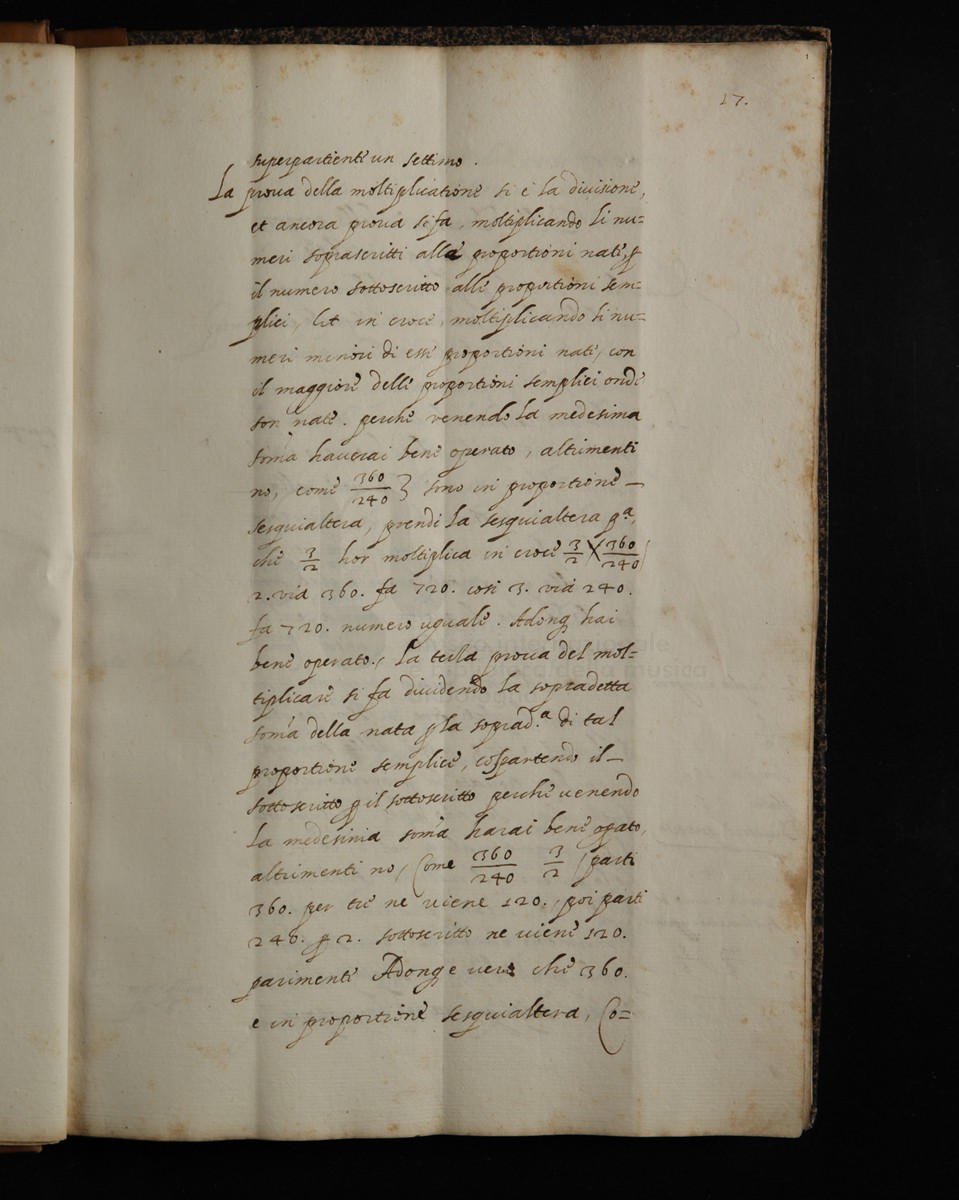 17.
superpartiente un settimo.
La prova della moltiplicatione si è la divisione,
et ancora prova si fa, moltiplicando li nu=
meri soprascritti alle proportioni nati, p
il numero sottoscritto alle proportioni sem=
plici, et in croce, moltiplicando li nu=
meri minori di esse proportioni nati, con
il maggiore delle proportioni semplici onde
son nate. perche venendo la medesima
soma haverai bene operato, altrimenti
no, come 360/240 } sono in proportione –
sesquialtera, prendi la sesquialtera pª,
che 3/2 hor moltiplica in croce 3/2 X 360/240
2. via 360. fa 720. cosi 3. via 240.
fa 720. numero uguale. Adonq hai
bene operato, la terza prova del mol=
tiplicare si fa dividendo la sopradetta
soma della nata p la soprad.ª di tal
proportione semplice, cosi partendo il –
sottoscritto p il sottoscritto perche venendo
la medesima soma harai bene opato,
altrimenti no, Come 360/240 3/2 parti
360. per tre ne viene 120., poi parti
240. p 2. sottoscritto ne viene 120.
parimente Adonq e vero che 360.
e in proportione sesquialtera, Co=